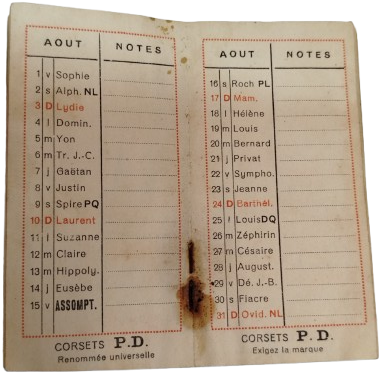 AOUT NOTES
1 v Sophie
2 s Alph. NL
3 D Lydie
4 l Domin.
5 m Yon
6 m Tr. J.-C.
7 j Gaëtan
8 v Justin
9 s Spire PQ
10 D Laurent
11 l Suzanne
12 m Claire
13 m Hippoly.
14 j Eusèbe
15 v ASSOMPT.
CORSETS P.D.
Renommée universelle
AOUT NOTES
16 s Roch PL
17 D Mam.
18 l Hélène
19 m Louis
20 m Bernard
21 j Privat
22 v Sympho.
23 s Jeanne
24 D Barthél.
25 l Louis DQ
26 m Zéphirin
27 m Césaire
28 j August.
29 v Dé. J.-B.
30 s Fiacre
31 D Ovid. NL
CORSETS P.D.
Exigez la marque